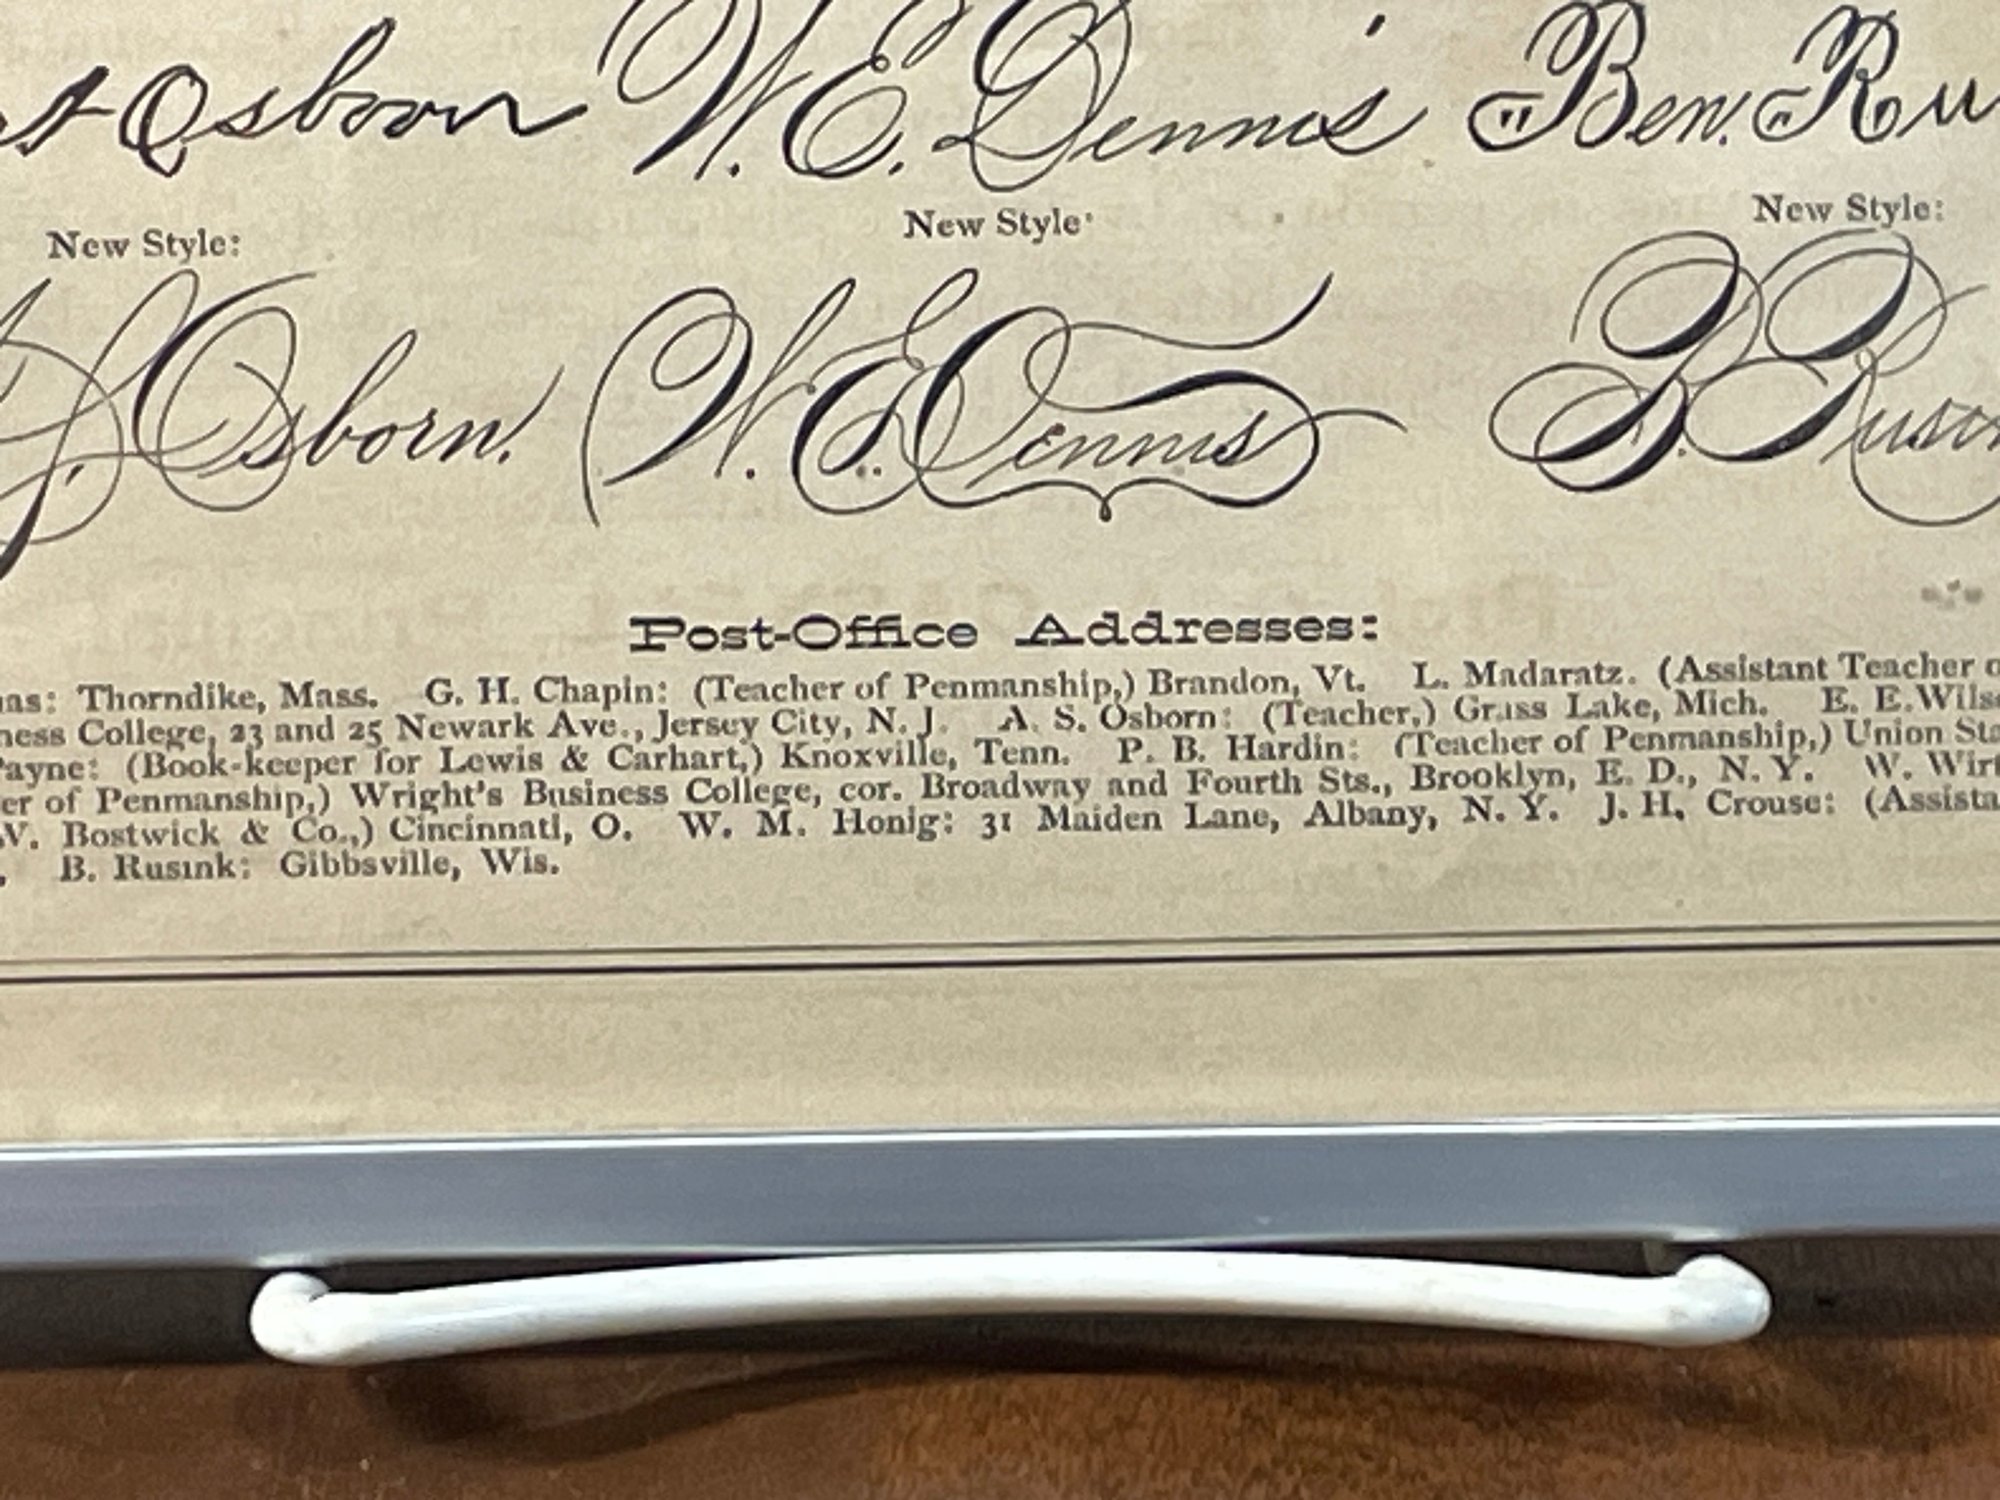 Osborn W. E. Dennis Ben. Ru
New Style: New Style: New Style:
Osborn. W. E. Dennis B. Rusin
Post-Office Addresses:
as: Thorndike, Mass. G. H. Chapin: (Teacher of Penmanship,) Brandon, Vt. L. Madaratz. (Assistant Teacher o
ness College, 23 and 25 Newark Ave., Jersey City, N. J. A. S. Osborn: (Teacher,) Grass Lake, Mich. E. E. Wils
Payne: (Book-keeper for Lewis & Carhart,) Knoxville, Tenn. P. B. Hardin: (Teacher of Penmanship,) Union Sta
er of Penmanship,) Wright's Business College, cor. Broadway and Fourth Sts., Brooklyn, E. D., N. Y. W. Wirt
V. Bostwick & Co.,) Cincinnati, O. W. M. Honig: 31 Maiden Lane, Albany, N. Y. J. H. Crouse: (Assista
B. Rusink: Gibbsville, Wis.